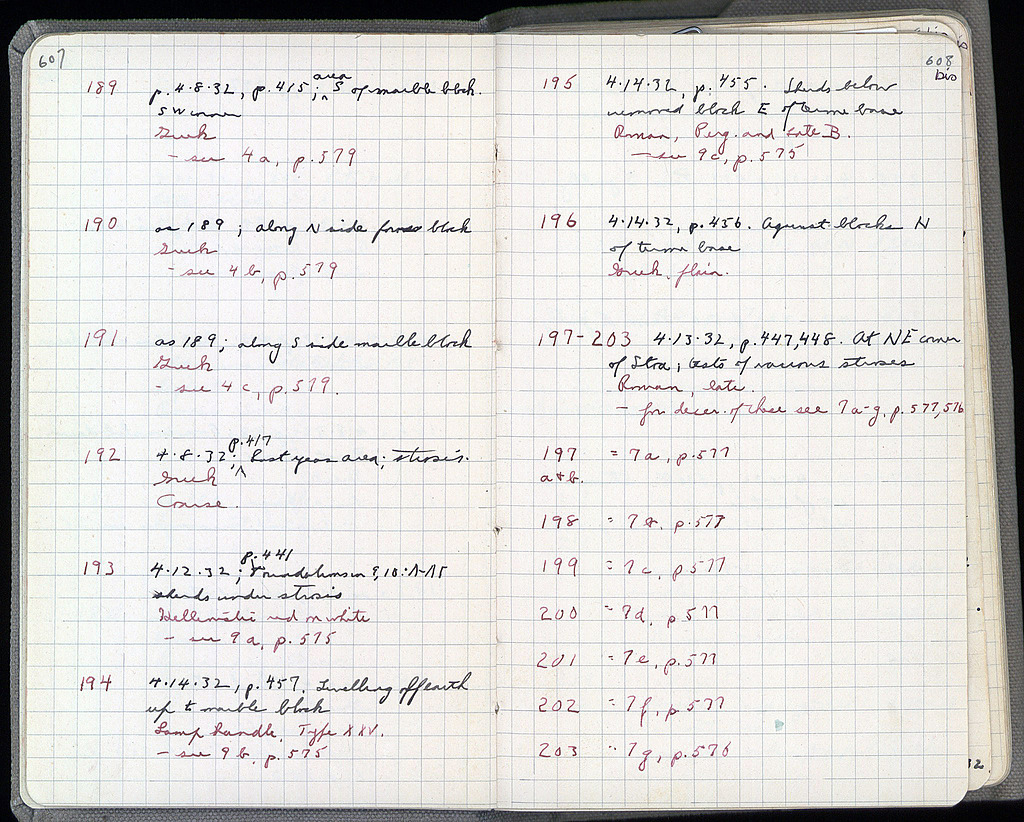 607
189 p. 4.8.32, p. 415; area S of marble block.
SW corner
Greek
- see 4a, p. 579
190 as 189; along N side block
Greek
- see 4b, p. 579
191 as 189; along S side marble block
Greek
- see 4c, p. 579.
192 4.8.32; p. 417 Last years area; strosis.
Greek
Coarse.
193 4.12.32; p. 441 9, 10:
sherds under strosis
Hellenistic red on white
- see 9a, p. 575
194 4.14.32, p. 457. Levelling off earth
up to marble block
Lamp handle, Type XXV.
- see 9b, p. 575
608
bis
195 4.14.32, p. 455. Sherds below
removed block E of terma base
Roman, Perg. and Late B.
- see 9c, p. 575
196 4.14.32, p. 456. Against blocks N
of terma base
Greek, plain.
197-203 4.13.32, p. 447, 448. At NE corner
of Stoa; tests of various stroses
Roman, late.
- for descr. of these see 7a-g, p. 577, 576
197 = 7a, p. 577
a+b.
198 = 7b, p. 577
199 = 7c, p. 577
200 = 7d, p. 577
201 = 7e, p. 577
202 = 7f, p. 577
203 = 7g, p. 576